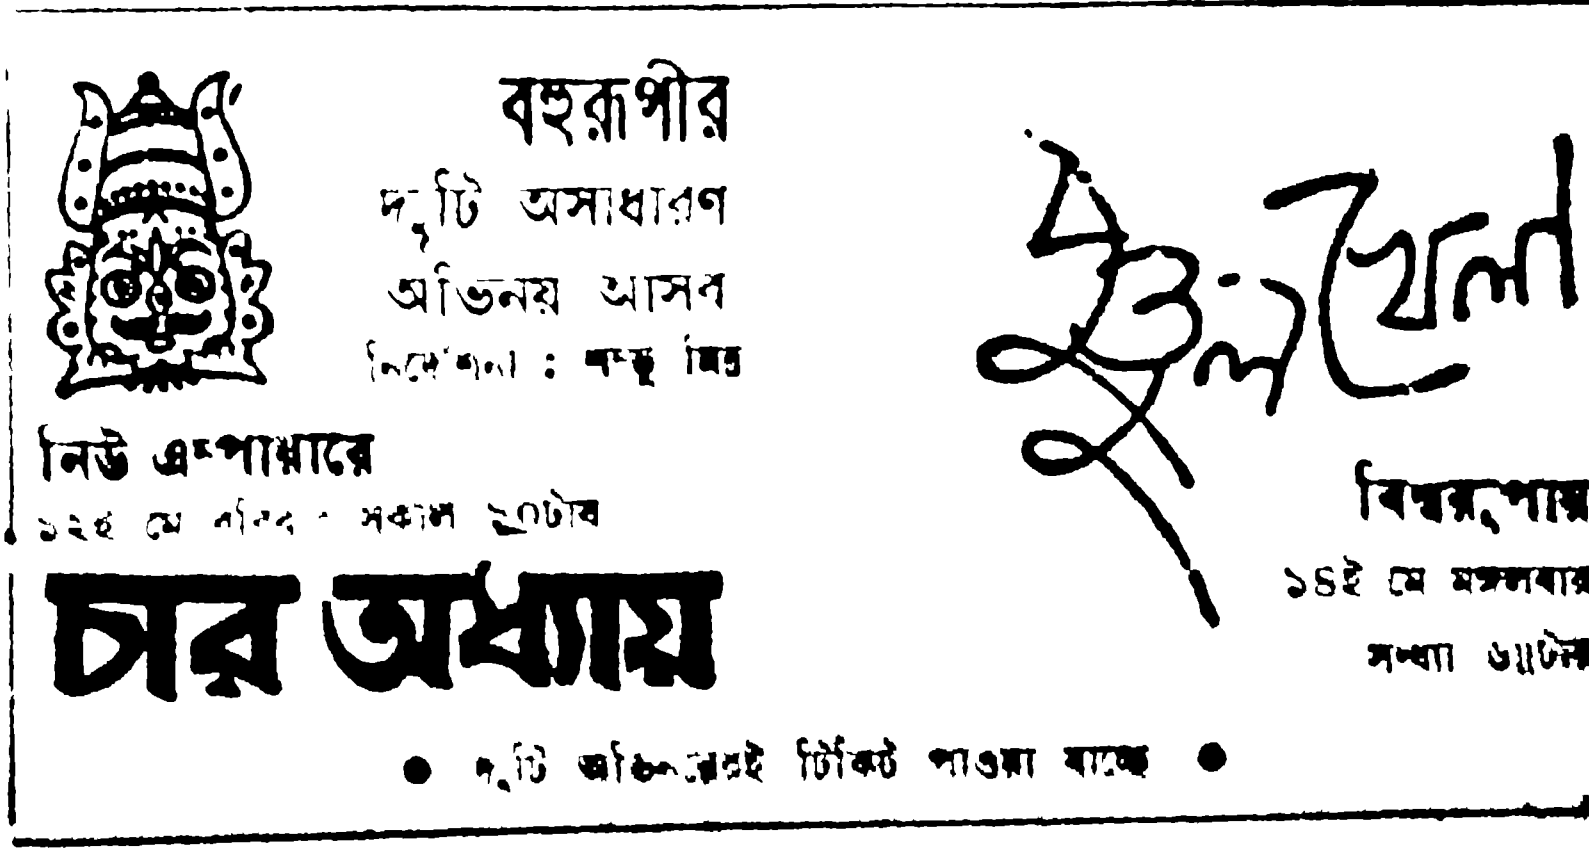 বহুরূপীর
দুটি অসাধারণ
অভিনয় আসর
নির্দেশনা : শম্ভু মিত্র
নিউ এম্পায়ারে
১২ই মে রবিবার সকাল ১০টায়
চার অধ্যায়
পুতুল খেলা
বিশ্বরূপায়
১৪ই মে মঙ্গলবার
সন্ধ্যা ৬॥টায়
● দুটি অভিনয়েরই টিকিট পাওয়া যাচ্ছে ●